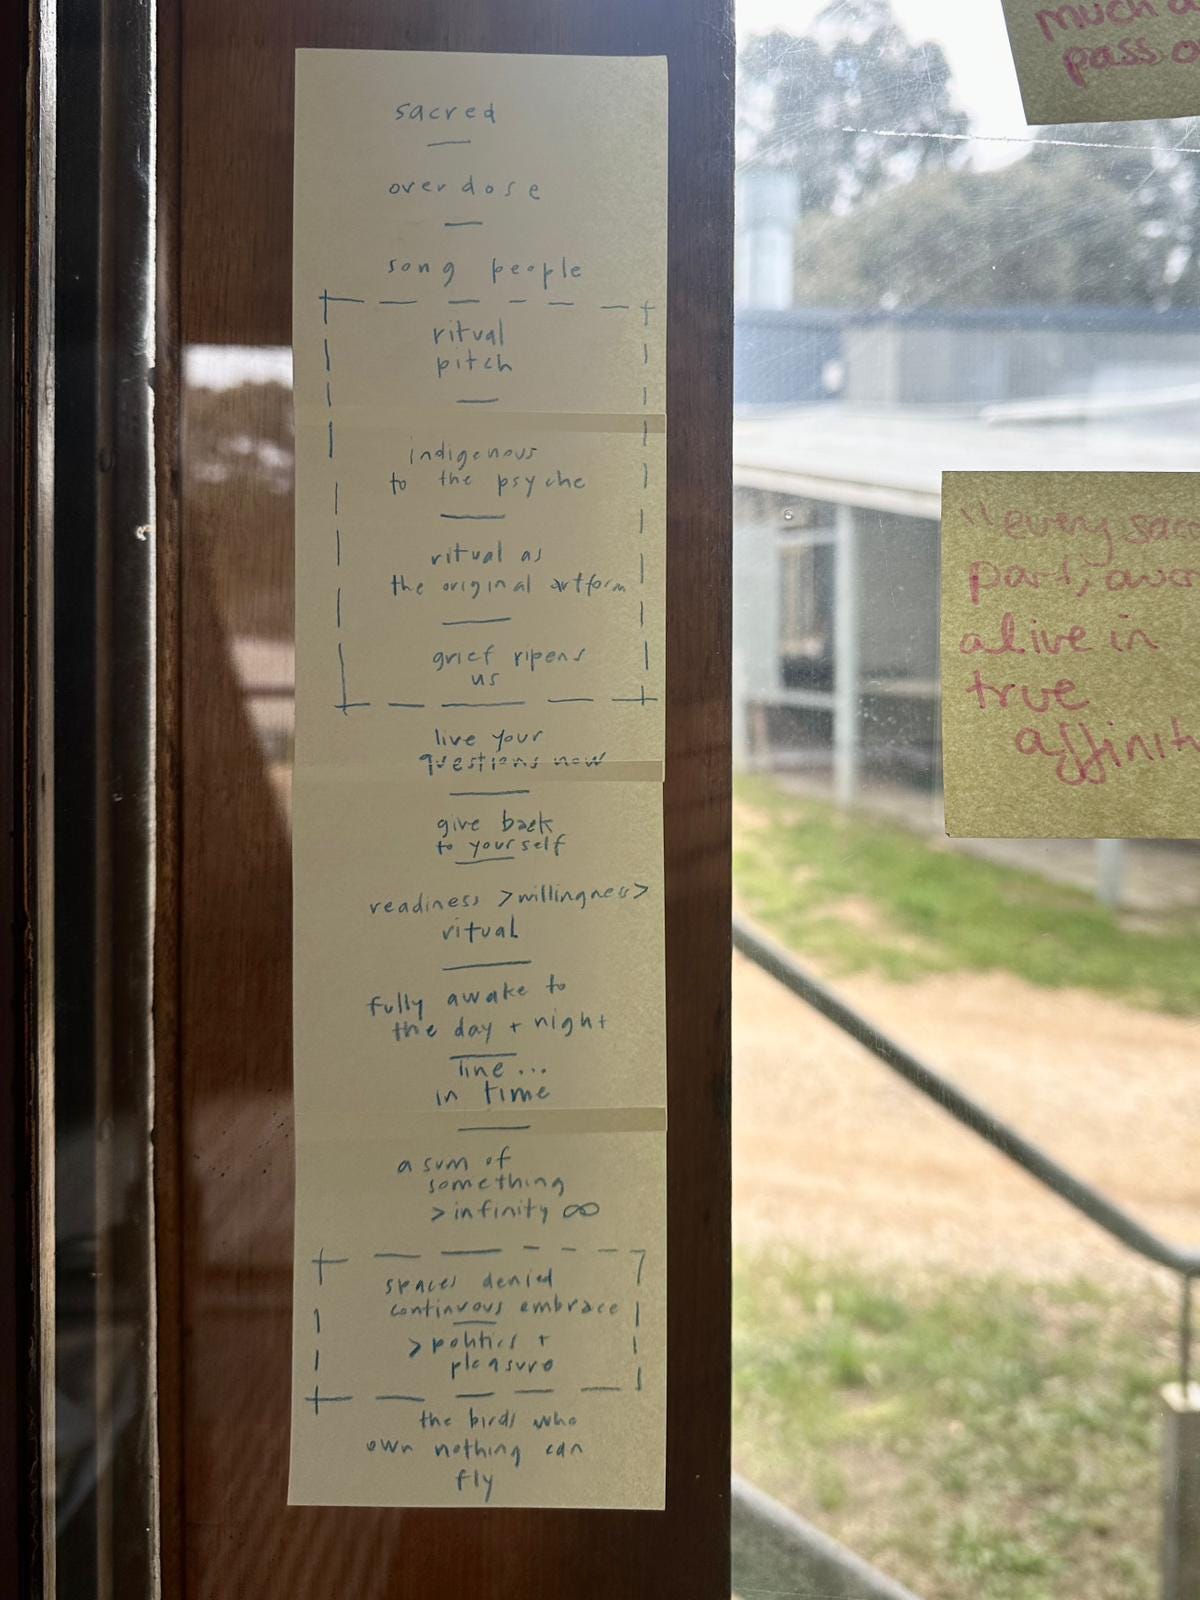 sacred
overdose
song people
ritual
pitch
indigenous
to the psyche
ritual as
the original artform
grief ripens
us
live your
questions now
give back
to yourself
readiness > willingness >
ritual
fully awake to
the day + night
Tine ...
in time
a sum of
something
> infinity ∞
spaces denied
continuous embrace
> politics +
pleasure
the birds who
own nothing can
fly
much
pass
"every
part,
alive in
true